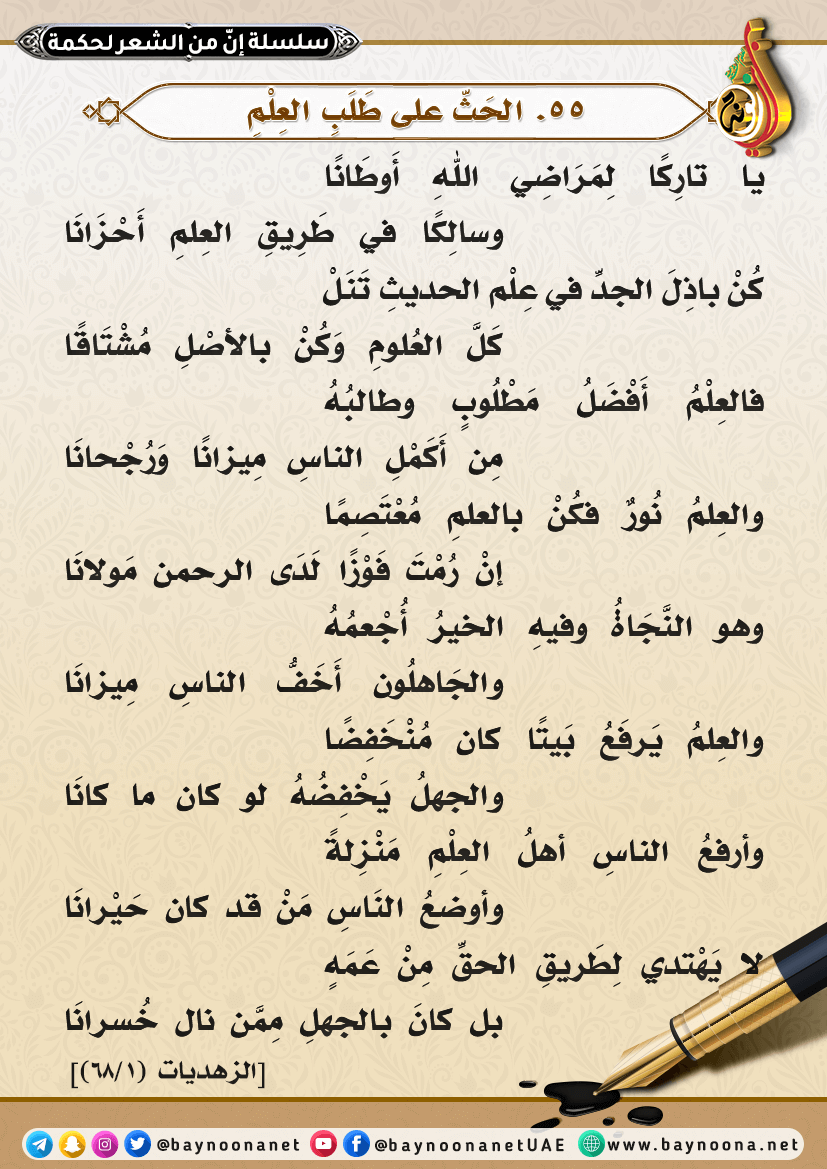 سلسلة إنّ من الشعر لحكمة
٥٥. الحَثّ على طَلَبِ العِلْمِ
يا تارِكًا لِمَرَاضِي اللهِ أَوطَانًا
وسالِكًا في طَرِيقِ العِلمِ أَحْزَانَا
كُنْ باذِلَ الجدِّ في عِلْم الحديثِ تَنَلْ
كَلَّ العُلومِ وَكُنْ بالأصْلِ مُشْتَاقًا
فالعِلْمُ أَفْضَلُ مَطْلُوبٍ وطالبُهُ
مِن أَكَمْلِ الناسِ مِيزانًا وَرُجْحانَا
والعِلمُ نُورٌ فكُنْ بالعلمِ مُعْتَصِمًا
إنْ رُمْتَ فَوْزًا لَدَى الرحمن مَولانَا
وهو النَّجَاةُ وفيهِ الخيرُ أُجْعمُهُ
والجَاهلُون أَخَفُّ الناسِ مِيزانَا
والعِلمُ يَرفَعُ بَيتًا كان مُنْخَفِضًا
والجهلُ يَخْفِضُهُ لو كان ما كانَا
وأرفعُ الناسِ أهلُ العِلْمِ مَنْزِلةً
وأوضعُ النَاسِ مَنْ قد كان حَيْرانَا
لا يَهْتدي لِطَريقِ الحقِّ مِنْ عَمَهٍ
بل كانَ بالجهلِ مِمَّن نال خُسرانَا
[الزهديات (٦٨/١)]
@baynoonanet @baynoonanetUAE www.baynoona.net